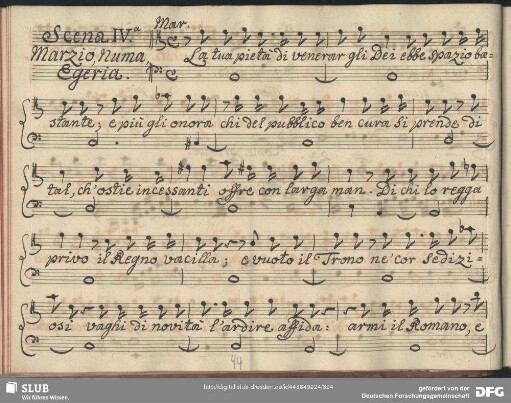 Scena IV.a Mar.
Marzio, Numa
Egeria.
La tua pietà di venerar gli Dei ebbe spazio ba=
stante; e più gli onora chi del pubblico ben cura si prende di
tal, ch'ostie incessanti offre con larga man. Di chi lo regga
privo il Regno vacilla; e vuoto il Trono ne' cor sedizi-
osi vaghi di novità l'ardire affida: armi il Romano, e
44
SLUB
Wir führen Wissen.
gefördert von der
Deutschen Forschungsgemeinschaft
DFG